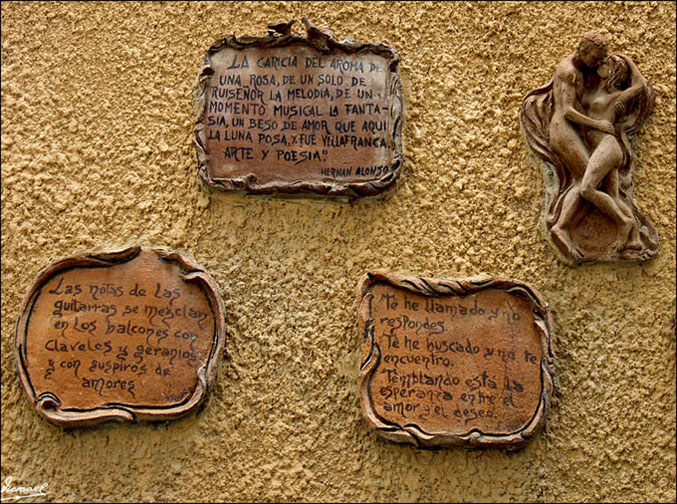 "LA CARICIA DEL AROMA DE
UNA ROSA, DE UN SOLO DE
RUISEÑOR LA MELODIA, DE UN
MOMENTO MUSICAL LA FANTA-
SIA, UN BESO DE AMOR QUE AQUI
LA LUNA POSA, Y FUE VILLAFRANCA
ARTE Y POESIA"
HERNAN ALONSO
Las notas de las
guitarras se mezclan
en los balcones con
claveles y geranios
y con suspiros de
amores
Te he llamado y no
respondes.
Te he buscado y no te
encuentro.
Temblando esta la
esperanza entre el
amor y el deseo.